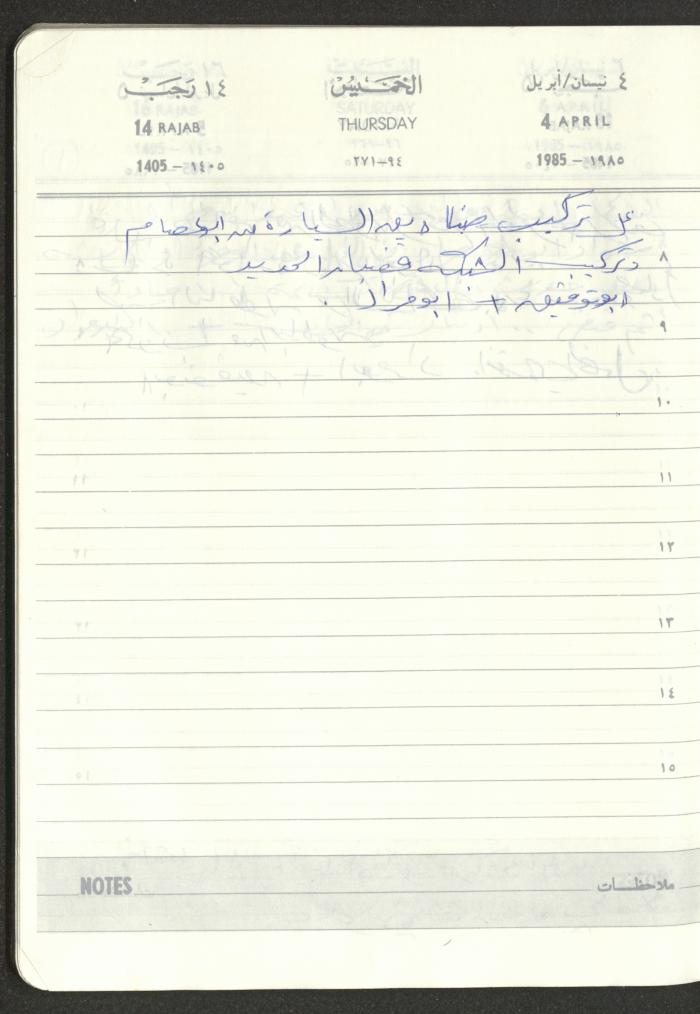 ٤ نيسان/أبريل الخميس ١٤ رجب
4 APRIL THURSDAY 14 RAJAB
1985 – ١٩٨٥ ٩٤–٢٧١ 1405 – ١٤٠٥
تركيب صناديق السيارة من ابو عصام
٨ وتركيب الشبك قضبان الحديد
ابو توفيق + ابو مراد .
٩
١٠
١١
١٢
١٣
١٤
١٥
ملاحظات NOTES